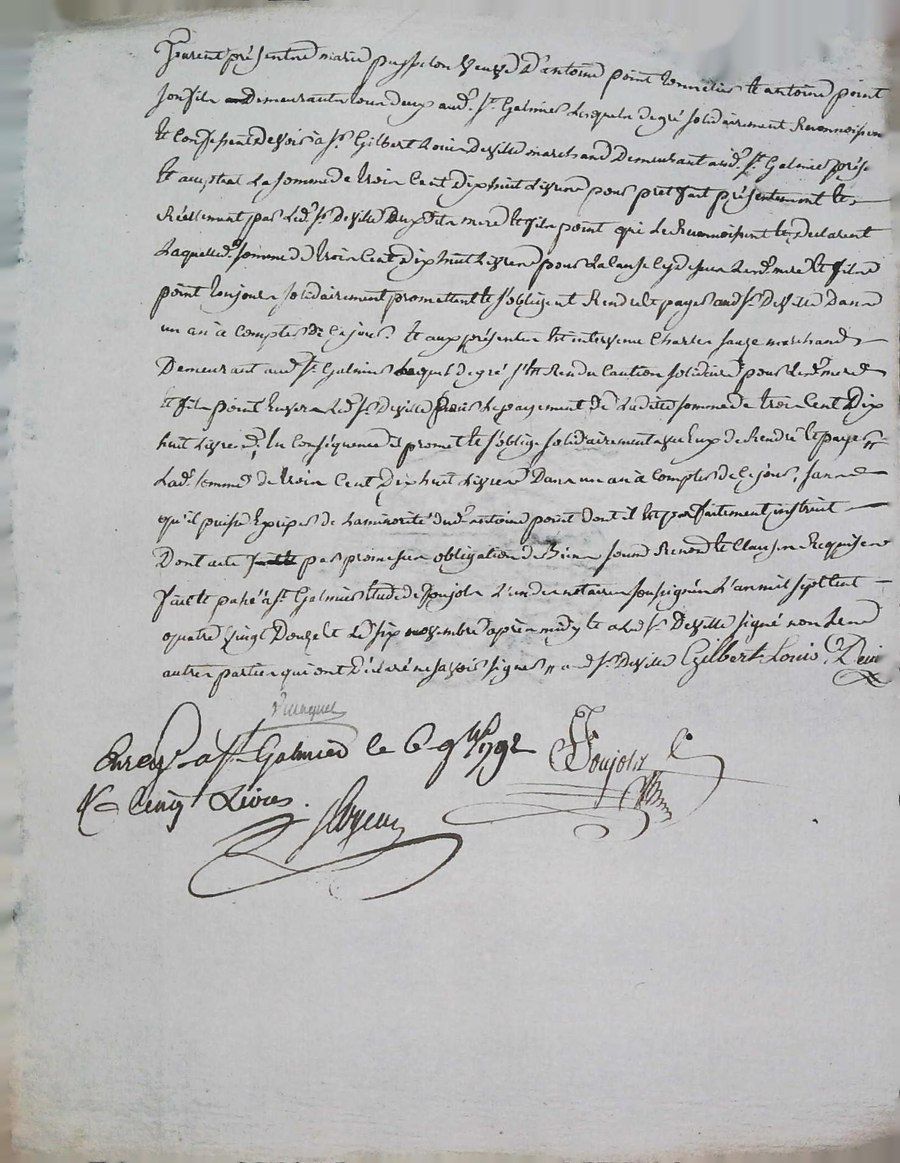 furent présents marie pusselon veuve d'antoine point tonnelier et antoine point
son fils demeurants tous deux aud. st. Galmier lesquels de gré solidairement Reconnoissent
et confessent devoir à sr. Gilbert Louis deville marchand Demeurant aud. st. Galmier présent
et acceptant La somme de trois Cent dix huit Livres pour pret fait présentement et
Réellement par Led. sr. Deville auxdits mere et fils point qui Le Reconnoissent et Déclarent
Laquelle d. somme de trois Cent dix huit Livres pour La cause cy dessus Lesd. mere et fils
point toujours solidairement promettent et s'obligent Rendre et payer aud. sr. Deville Dans
un an à compter de ce jour. et aux présentes est intervenu Charles sauze marchand
Demeurant aud. st. Galmier Lequel de gré s'est Rendu Caution solidaire pour Lesd. mere
et fils point Envers Led. sr. Deville pour Le payement de Ladite somme de trois Cent Dix
huit Livres En Conséquence il promet et s'oblige solidairement avec Eux de Rendre et payer
Lad. somme de trois Cent Dix huit Livres Dans un an à compter de ce jour, sans
qu'il puisse Exciper de La minorité dud. antoine point dont il est parfaitement instruit
Dont acte par promesses obligation de Biens soumd. Renond. et Clauses Requises
fait et passé à st. Galmier Etude de Poujols L'un des notaires soussignés L'an mil sept Cent
quatre vingt Douze et Le six novembre après midy et a Led. sr. Deville signé non Les
autres parties qui ont Déclaré ne savoir signer // a led. sr. Deville Gilbert Louis Devil
Enreg. a st. Galmier le 6 9bre 1792 Poujols
R. Cinq Livres.